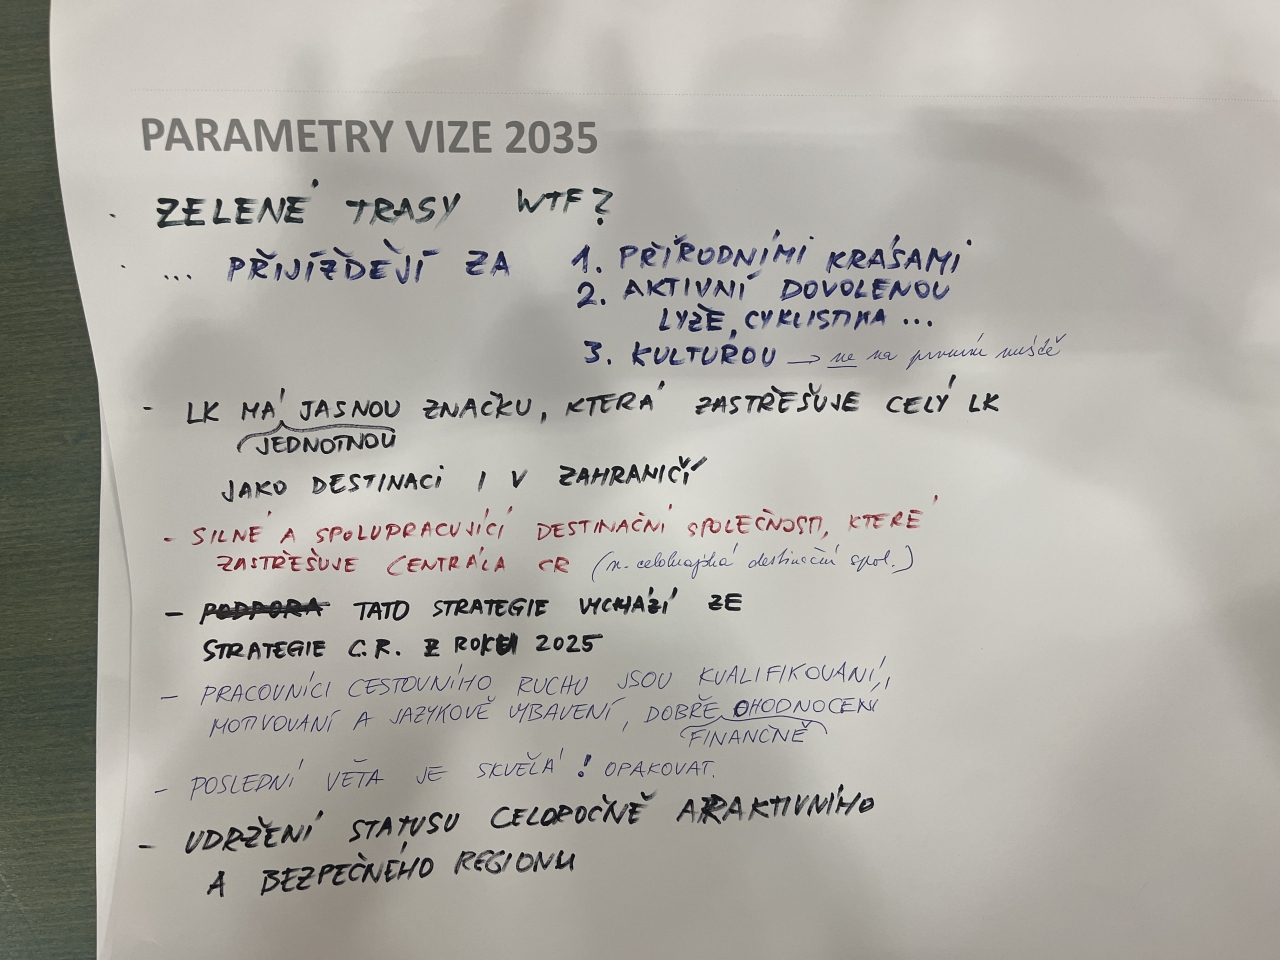 PARAMETRY VIZE 2035
· ZELENÉ TRASY WTF?
· ... PŘIJÍŽDĚJÍ ZA 1. PŘÍRODNÍMI KRÁSAMI
2. AKTIVNÍ DOVOLENOU
LYŽE, CYKLISTIKA ...
3. KULTUROU → ne na prvním místě
- LK MÁ JASNOU ZNAČKU, KTERÁ ZASTŘEŠUJE CELÝ LK
JEDNOTNOU
JAKO DESTINACI I V ZAHRANIČÍ
- SILNÉ A SPOLUPRACUJÍCÍ DESTINAČNÍ SPOLEČNOSTI, KTERÉ
ZASTŘEŠUJE CENTRÁLA CR (n. celokrajská destinační spol.)
- PODPORA TATO STRATEGIE VYCHÁZÍ ZE
STRATEGIE C.R. Z ROKU 2025
- PRACOVNÍCI CESTOVNÍHO RUCHU JSOU KVALIFIKOVANÍ,
MOTIVOVANÍ A JAZYKOVĚ VYBAVENÍ, DOBŘE OHODNOCENÍ
FINANČNĚ
- POSLEDNÍ VĚTA JE SKVĚLÁ! OPAKOVAT.
- UDRŽENÍ STATUSU CELOROČNĚ ATRAKTIVNÍHO
A BEZPEČNÉHO REGIONU